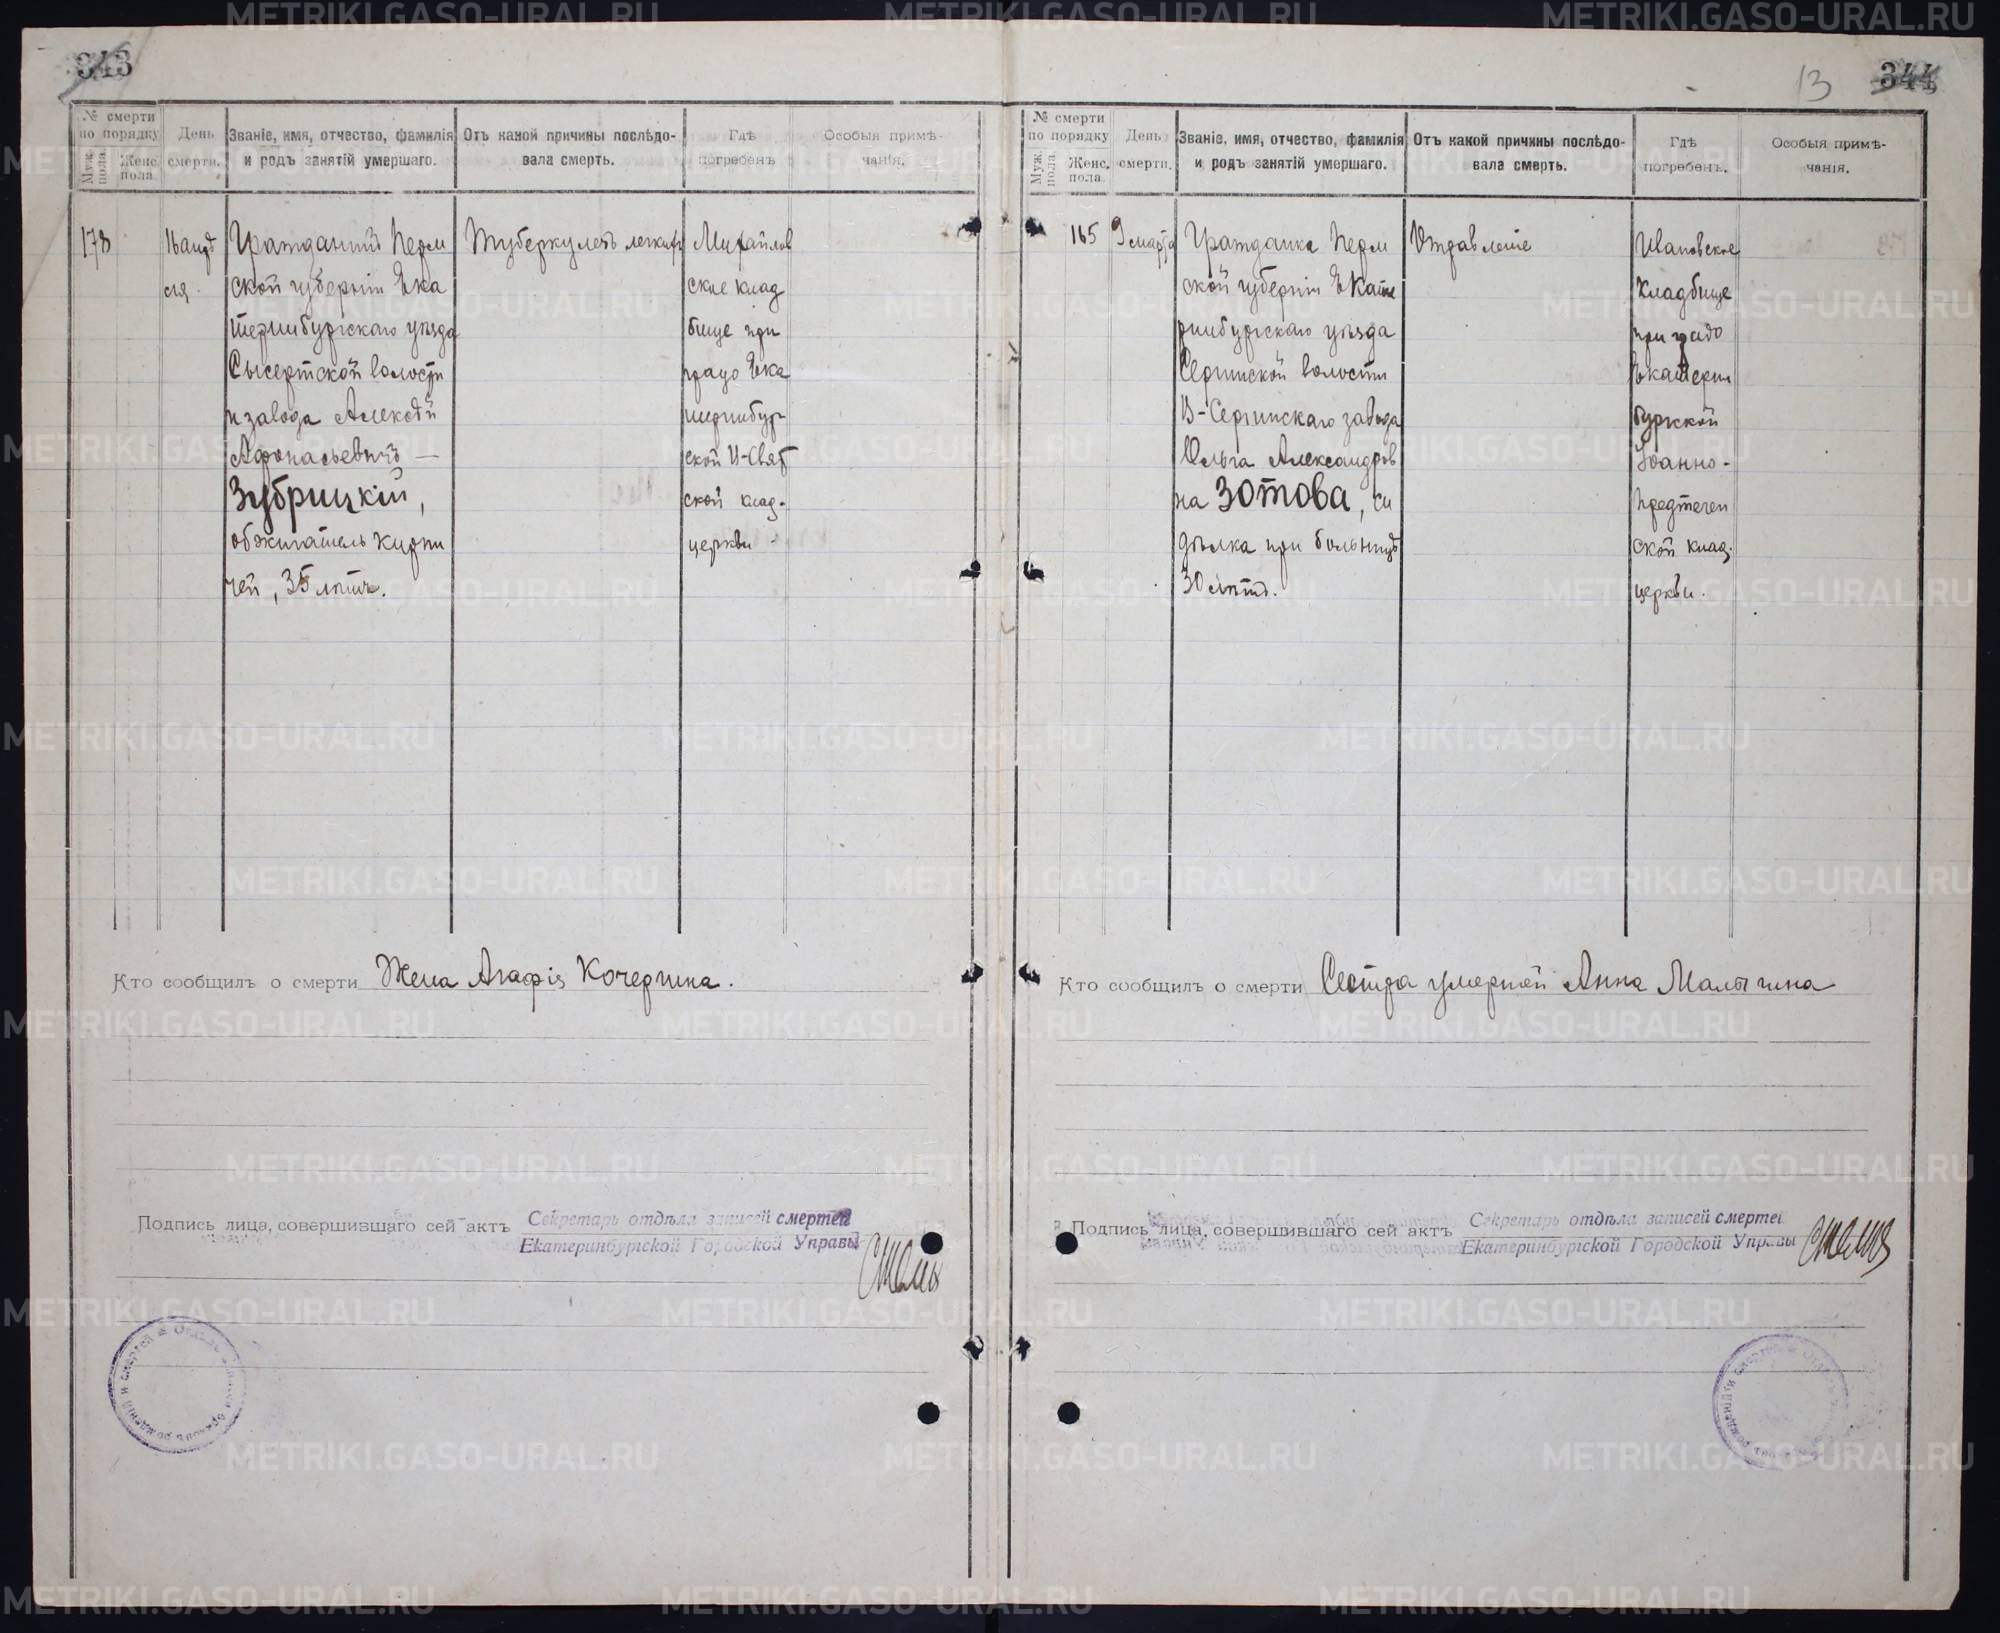 343
№ смерти
по порядку
Муж.
пола.
Женс.
пола
День
смерти.
Званіе, имя, отчество, фамилія
и родъ занятій умершаго.
Отъ какой причины послѣдо-
вала смерть.
Гдѣ
погребенъ
Особыя примѣ-
чанія.
178
16 апрѣ
ля.
Гражданинъ Перм
ской губерніи Ека
теринбургскаго уѣзда
Сысертской волости
и завода Алексѣй
Афонасьевичъ —
Зубрицкій,
обжигатель кирпи
чей, 35 лѣтъ.
Туберкулезъ легкихъ
Михайлов
ское клад
бище при
градо Ека
теринбур
ской
ской клад.
церкви
Кто сообщилъ о смерти Жена Агафія Кочергина.
Подпись лица, совершившаго сей актъ
Секретарь отдѣла записей смертей
Екатеринбургской Городской Управы
13 344
№ смерти
по порядку
Муж.
пола.
Женс.
пола.
День
смерти.
Званіе, имя, отчество, фамилія
и родъ занятій умершаго.
Отъ какой причины послѣдо-
вала смерть.
Гдѣ
погребенъ.
Особыя примѣ-
чанія.
165
9 марта
Гражданка Перм
ской губерніи Екате
ринбургскаго уѣзда
Сергинской волости
В-Сергинскаго завода
Ольга Александров
на Зотова, си
дѣлка при больницѣ
30 лѣтъ.
Отравленіе
Ивановское
кладбище
при градо
Екатерин
бургской
Іоанно-
Предтечен
ской клад.
церкви.
Кто сообщилъ о смерти Сестра умершей Анна Малыгина
Подпись лица, совершившаго сей актъ
Секретарь отдѣла записей смертей
Екатеринбургской Городской Управы
METRIKI.GASO-URAL.RU